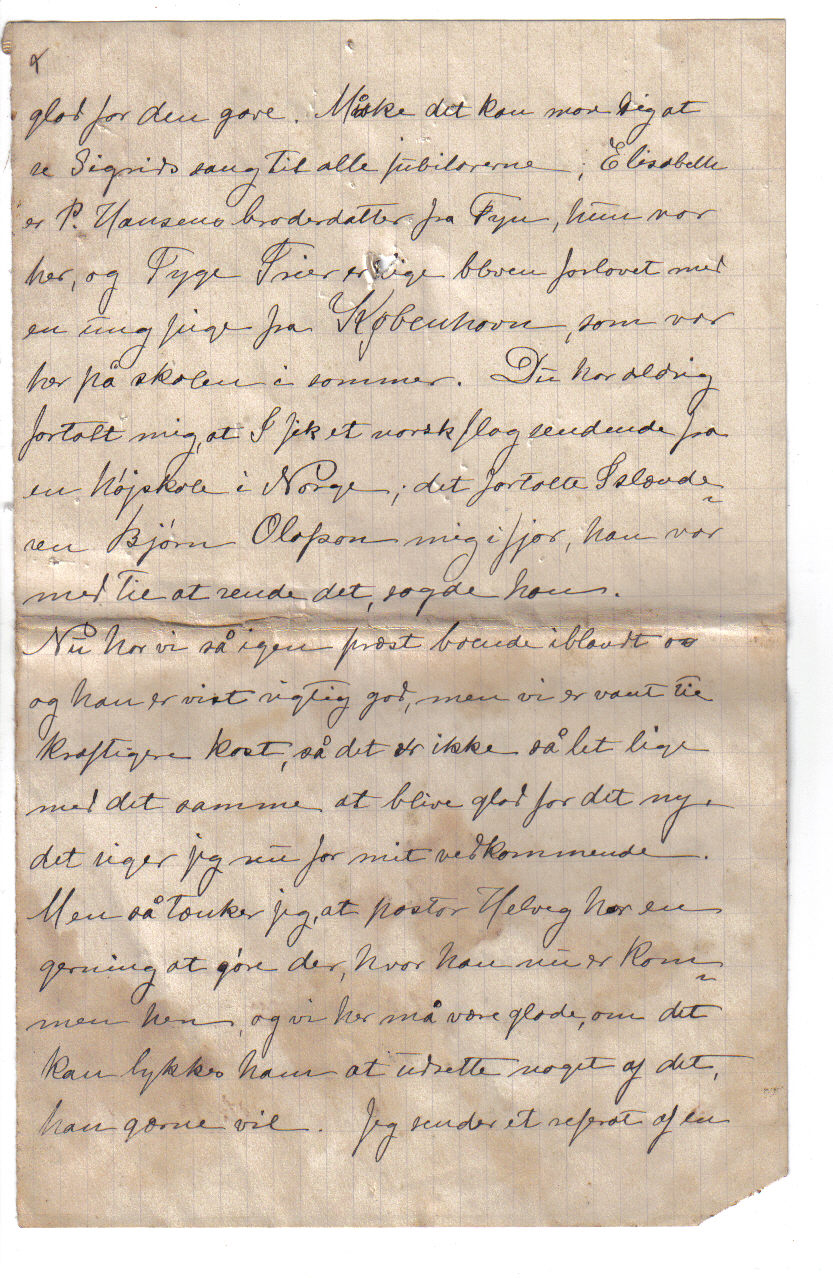 glad for den gave. Måske det kan more dig at
se Sigrids sang til alle jubilarerne; Elisabeth
er P. Hansens broderdatter fra Fyn, hun var
her, og Tyge Trier er lige bleven forlovet med
en ung pige fra København, som var
her på skolen i sommer. Du har aldrig
fortalt mig, at I fik et norsk flag sendende fra
en højskole i Norge; det fortalte Islænde-
ren Bjørn Olafson mig i fjor, han var
med til at sende det, sagde han.
Nu har vi så igen præst boende iblandt os
og han er vist rigtig god, men vi er vant til
kraftigere kost, så det er ikke så let lige
med det samme at blive glad for det ny,
det siger jeg nu for mit vedkommende.
Men så tænker jeg, at pastor Helveg har en
gerning at gøre der, hvor han nu er kom-
men hen, og vi her må være glade, om det
kan lykkes ham at udrette noget af det,
han gærne vil. Jeg sender et referat af en